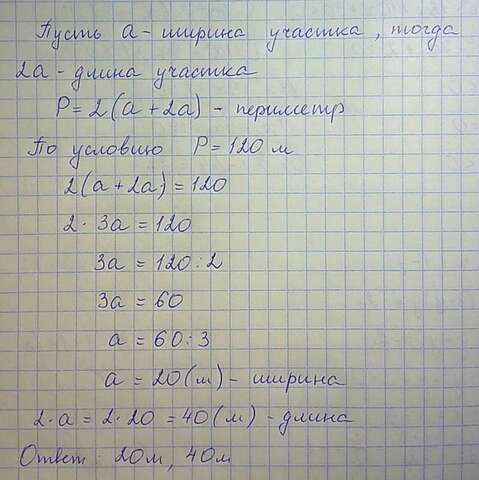 Пусть a - ширина участка, тогда
2a - длина участка
P = 2(a + 2a) - периметр
По условию P = 120 м
2(a + 2a) = 120
2 · 3a = 120
3a = 120 : 2
3a = 60
a = 60 : 3
a = 20 (м) - ширина
2 · a = 2 · 20 = 40 (м) - длина
Ответ: 20м, 40м